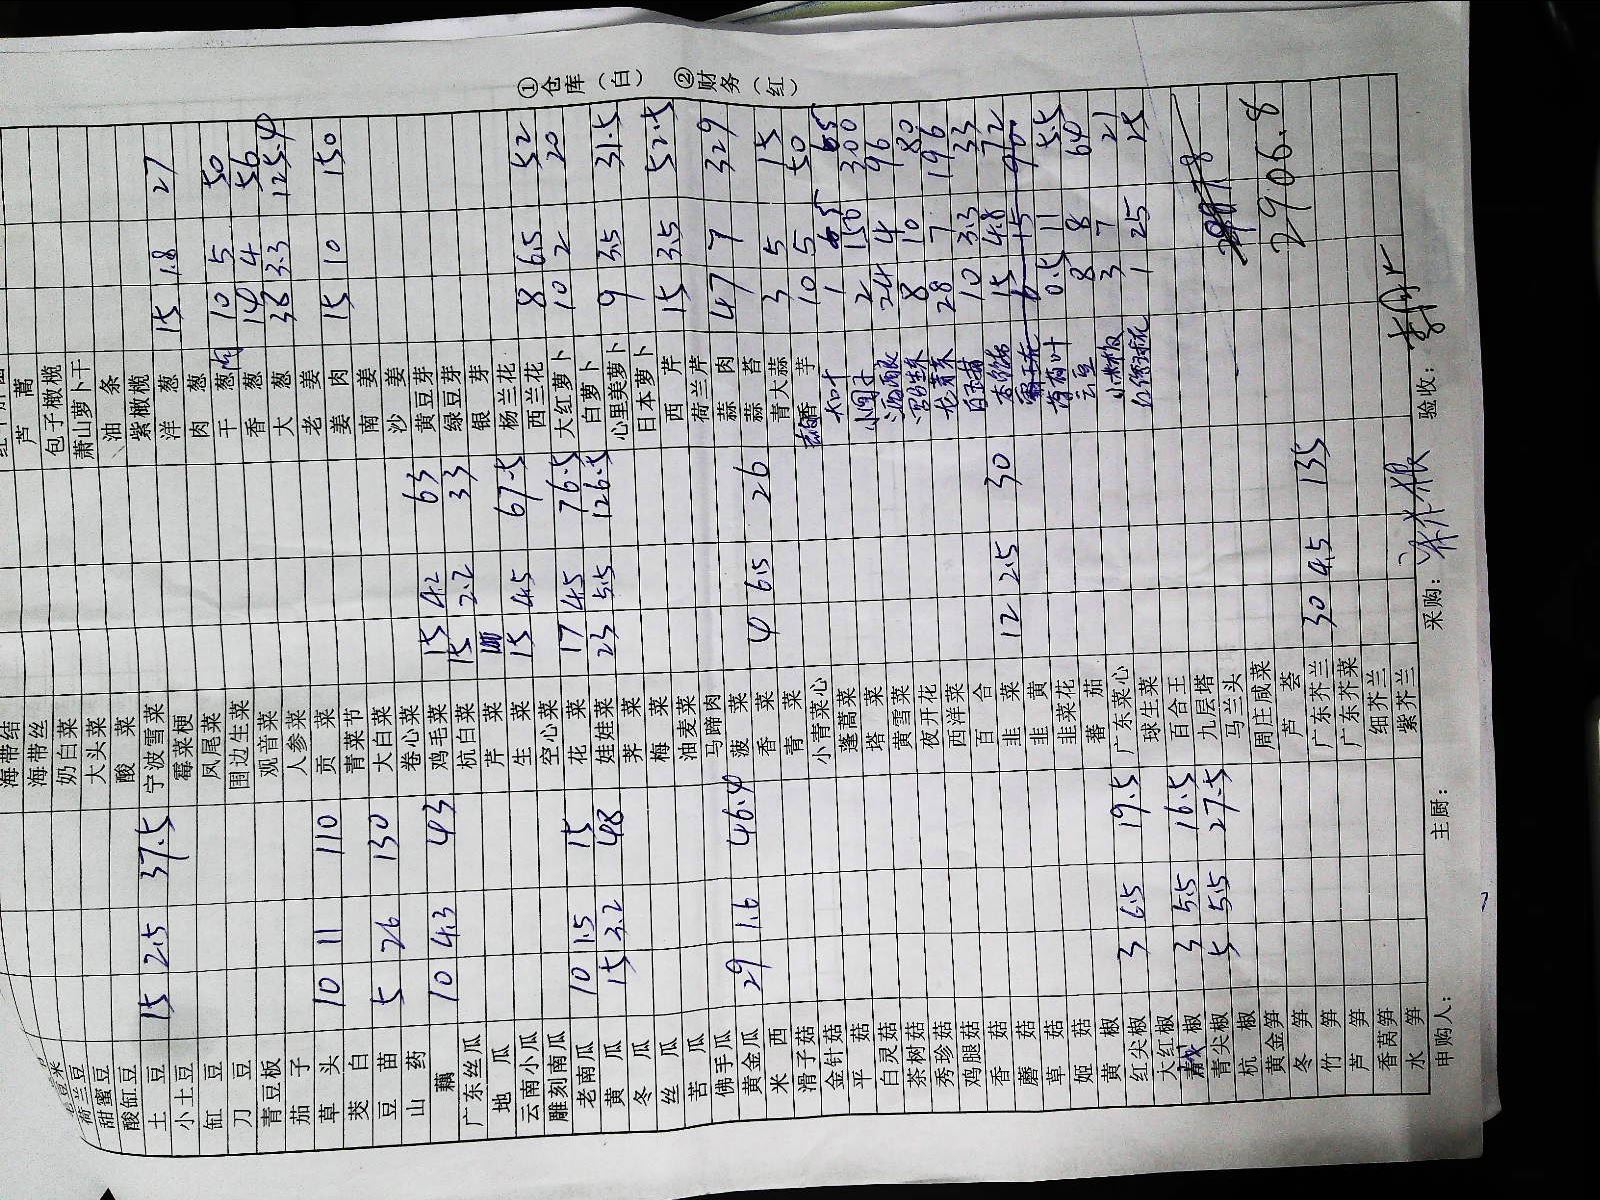 荷兰豆
甜蜜豆
酸缸豆
土豆 15 2.5 37.5
小土豆
缸豆
刀豆
青豆板
茄子
草头 10 11 110
茭白
豆苗 5 26 130
山药
藕 10 4.3 43
广东丝瓜
地瓜
云南小瓜
雕刻南瓜
老南瓜 10 1.5 15
黄瓜 15 3.2 48
冬瓜
丝瓜
苦瓜
佛手瓜
黄金瓜 29 1.6 46.4
米西
滑子菇
金针菇
平菇
白灵菇
茶树菇
秀珍菇
鸡腿菇
香菇
蘑菇
草菇
姬菇
黄椒
红尖椒 3 6.5 19.5
大红椒
椒 3 5.5 16.5
青尖椒 5 5.5 27.5
杭椒
黄金笋
冬笋
竹笋
芦笋
香莴笋
水笋
海带结
海带丝
奶白菜
大头菜
酸菜
宁波雪菜
霉菜梗
凤尾菜
围边生菜
观音菜
人参菜
贡菜
青菜节
大白菜
卷心菜
鸡毛菜 15 4.2 63
杭白菜 15 2.2 33
芹菜
生菜 15 4.5 67.5
空心菜
花菜 17 4.5 76.5
娃娃菜 23 5.5 126.5
荠菜
梅菜
油麦菜
马蹄肉
菠菜
香菜 4 6.5 26
青菜
小青菜心
蓬蒿菜
塔菜
黄雪菜
夜开花
西洋菜
百合
韭菜 12 2.5 30
韭黄
韭菜花
蕃茄
广东菜心
球生菜
百合王
九层塔
马兰头
周庄咸菜
芦荟
广东芥兰 30 4.5 135
广东芥菜
细芥兰
紫芥兰
芦蒿
包子橄榄
萧山萝卜干
油条
紫橄榄
洋葱 15 1.8 27
肉葱
干葱肉 10 5 50
香葱 14 4 56
大葱 38 3.3 125.4
老姜
姜肉 15 10 150
南姜
沙姜
黄豆芽
绿豆芽
银芽
杨兰花
西兰花 8 6.5 52
大红萝卜 10 2 20
白萝卜
心里美萝卜 9 3.5 31.5
日本萝卜
西芹 15 3.5 52.5
荷兰芹
蒜肉 47 7 329
蒜苔
青大蒜 3 5 15
香芋 10 5 50
1 65 65
2 150 300
24 4 96
8 10 80
28 7 196
10 3.3 33
15 4.8 72
6 15 90
荷叶 0.5 11 5.5
云豆 8 8 64
小米椒 3 7 21
1 25 25
2906.8
①仓库（白） ②财务（红）
申购人： 主厨： 采购： 验收：